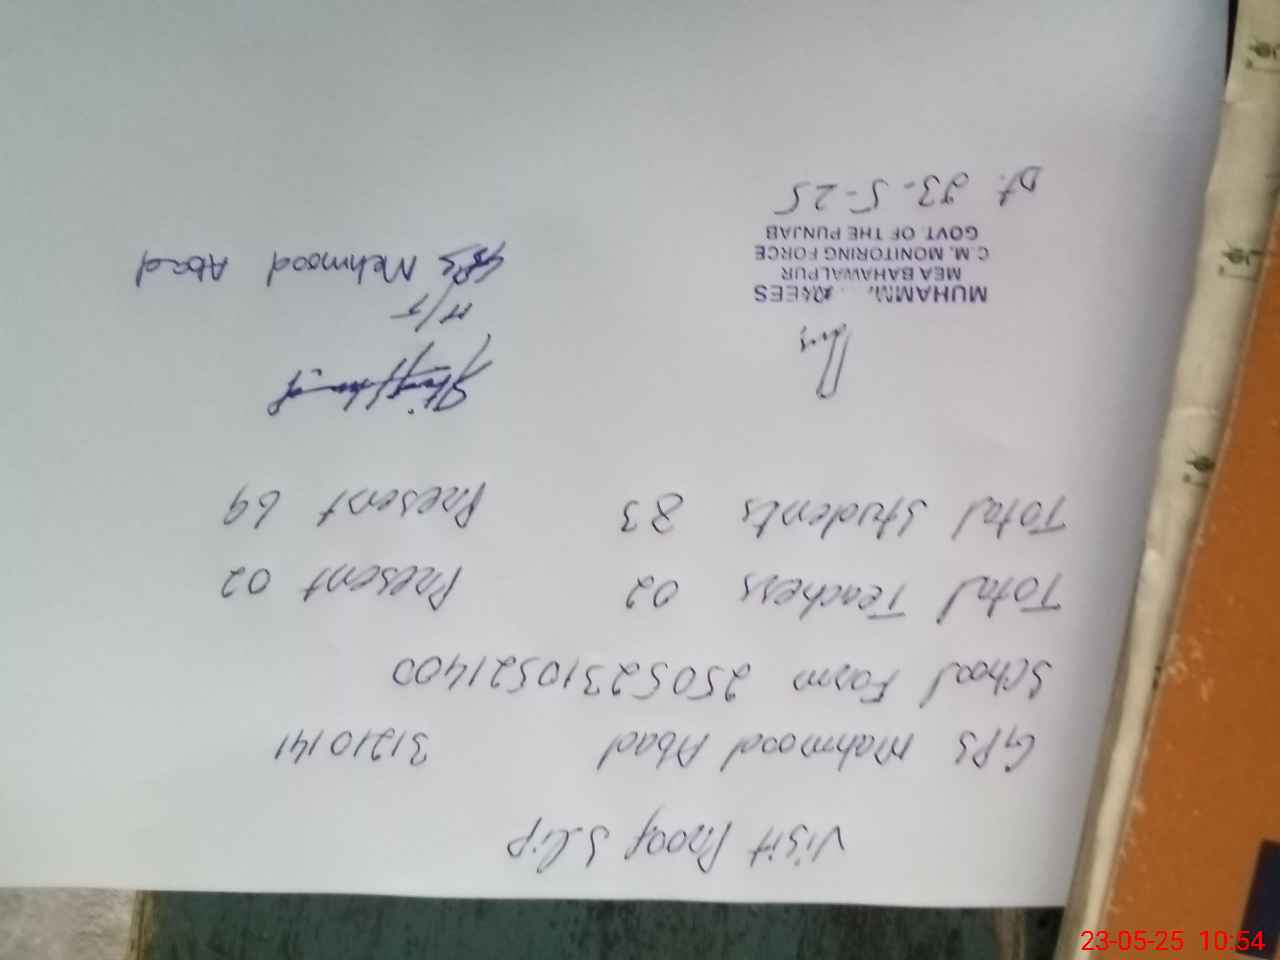 Visit Proof Slip
GPS Mahmood Abad 31210141
School Form 2505231052140​0
Total Teachers 02 Present 02
Total Students 83 Present 69
H/T
GPS Mehmood Abad
MUHAMM
MEA BAHAWALPUR
C.M. MONITORING FORCE
GOVT. OF THE PUNJAB
Dt. 23-5-25
23-05-25 10:54